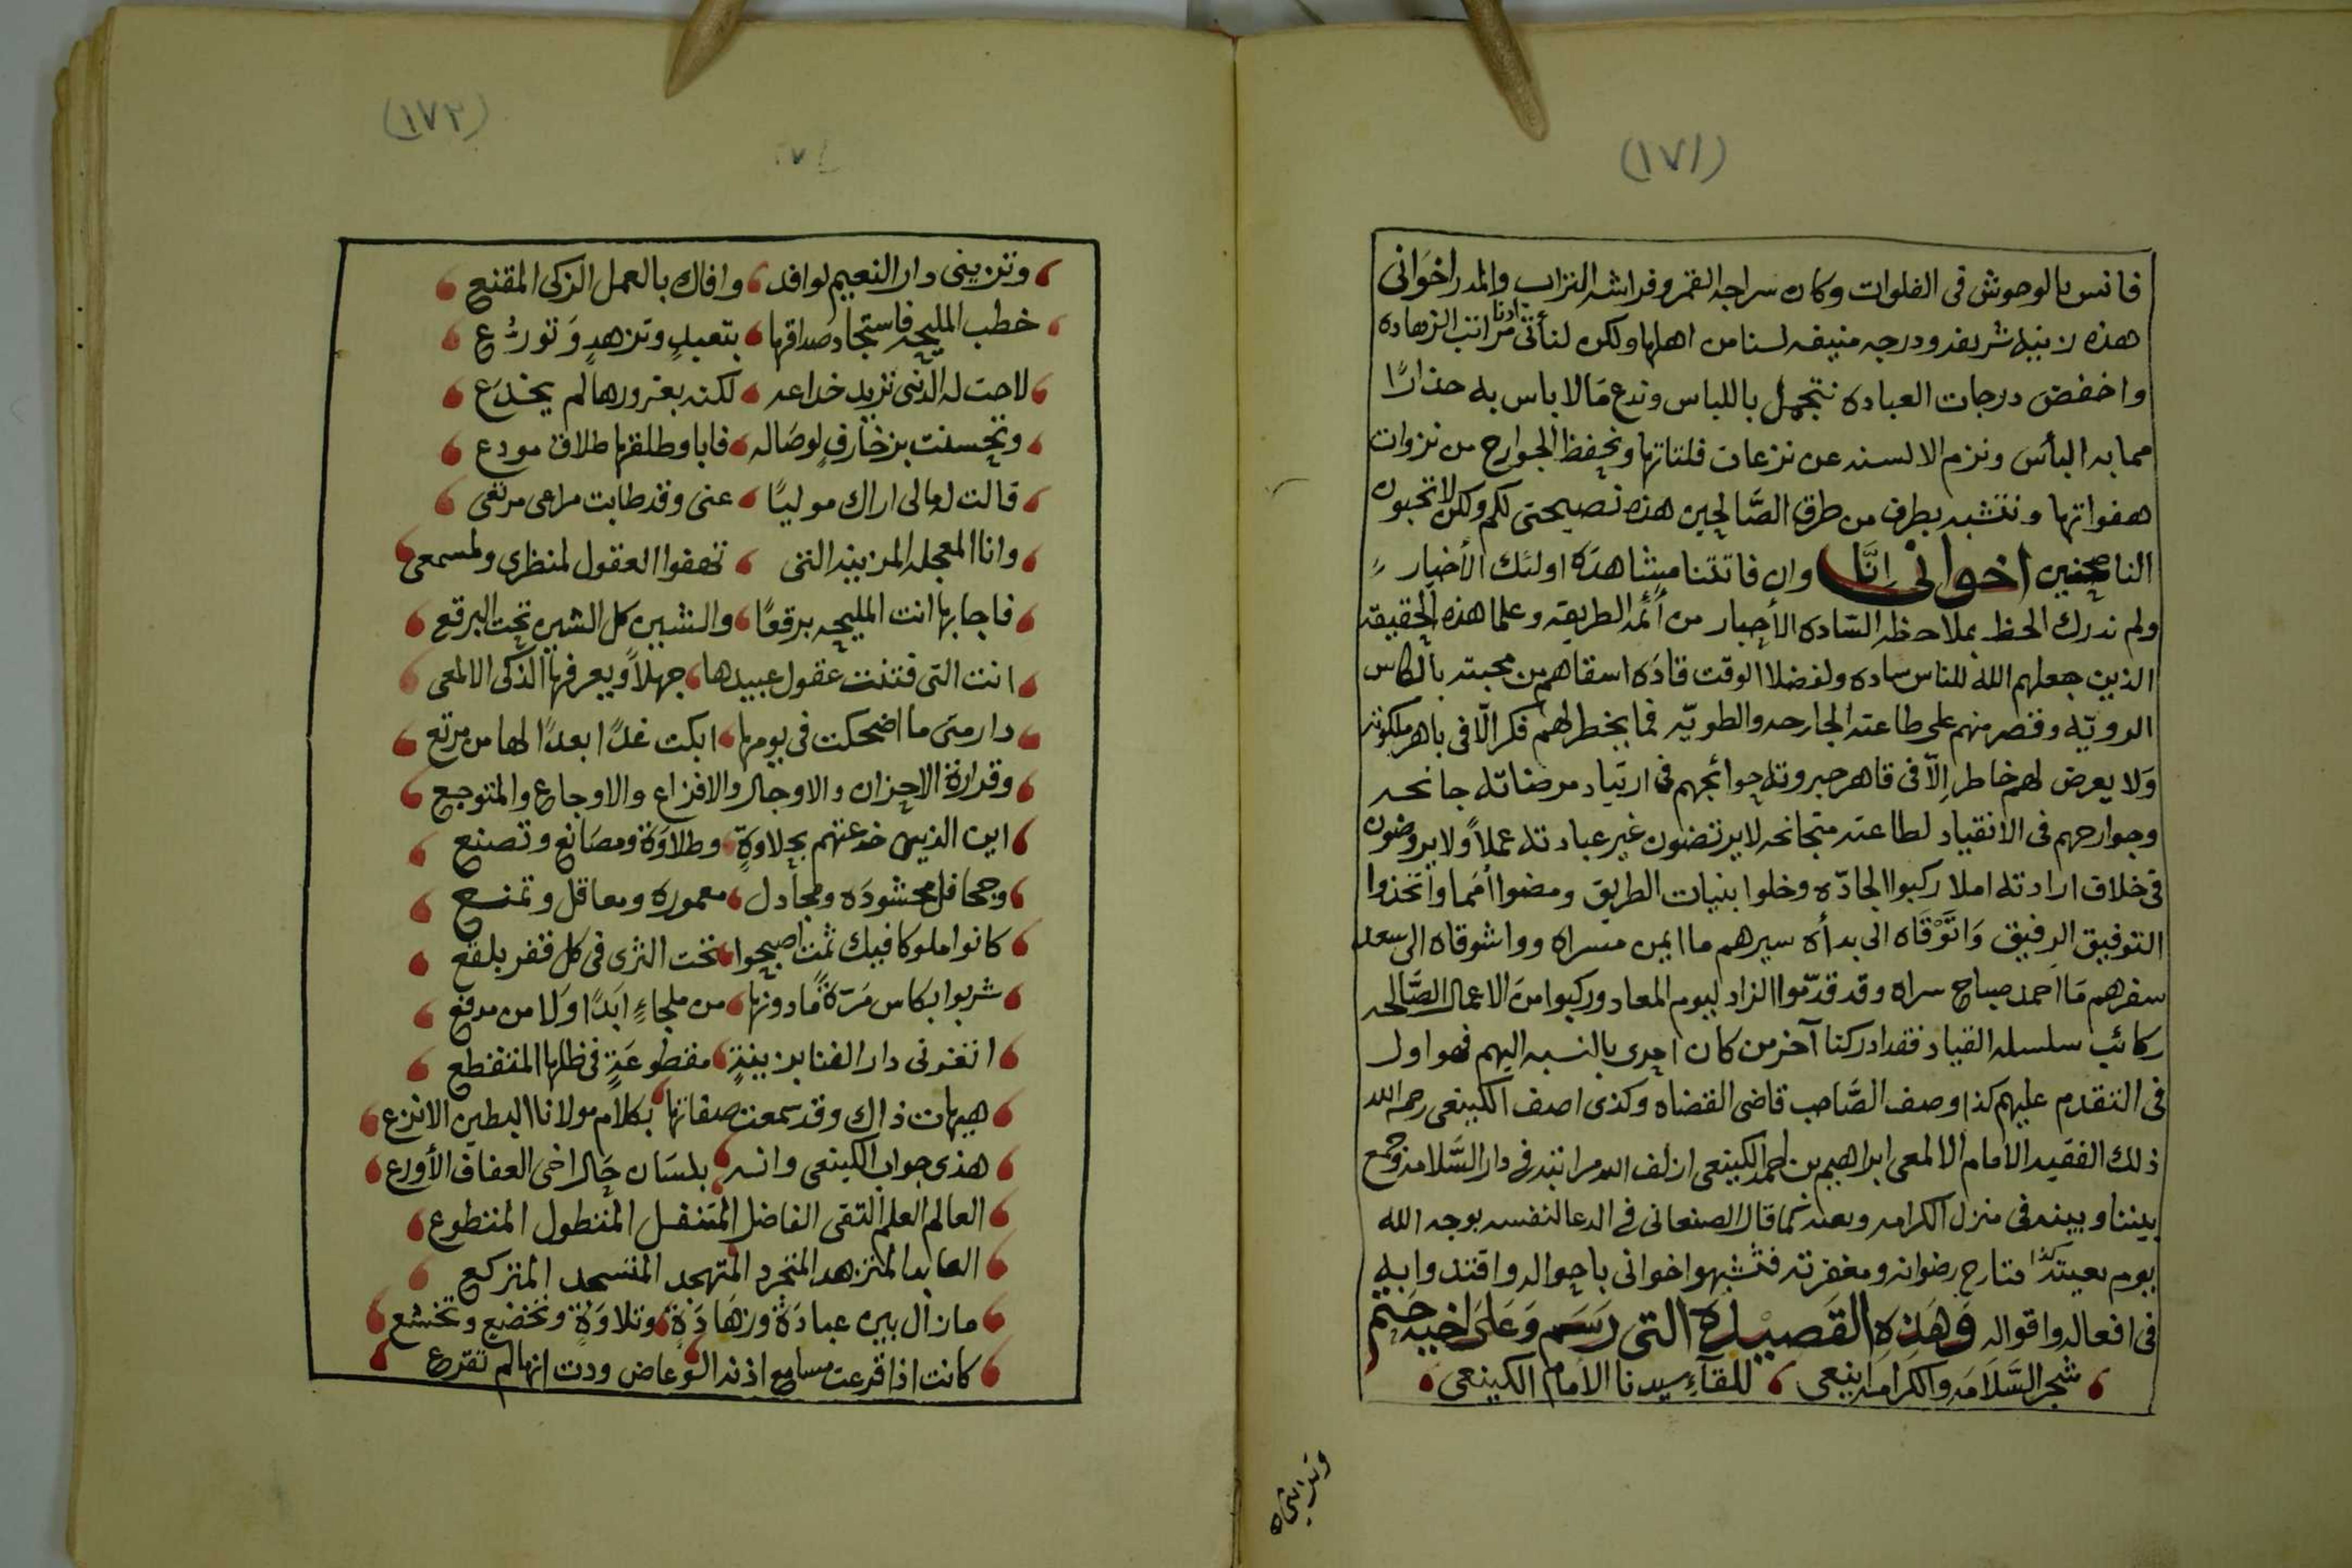 (١٧١)
فانس بالوحوش فى الفلوات وكان سراجه القمر وفراشه التراب والمدر اخوانى
هذه رتبة شريفه ودرجه منيفه لسنا من اهلها ولكن لنا فى ادنا مراتب الزهاده
واخفض درجات العباده نتجمل باللباس وندع مالا باس به حذارًا
مما به البأس ونزم الالسنه عن نزعات فلتاتها ونحفظ الجوارح من نزوات
هفواتها ونتشبه بطرف من طرق الصَّالحين هذه نصيحتى لكم ولكن لا تحبون
الناصحين اخوانى انَّا وان فاتتنا مشاهدَة اولئك الأخيار
ولم ندرك الحظ بملاحظة السَّاده الأحبار من أئمه الطريقه وعلما هذه الحقيقه
الذين جعلهم الله للناس ساده ولفضلا الوقت قادَه اسقاهم من محبته بالكاس
الرويّه وقصر منهم على طاعته الجارحه والطويّه فما يخطر لهم فكر الّا فى باهر ملكوته
وَلا يعرض لهم خاطر اِلاّ فى قاهر جبروته حوائجهم فى ارتياد مرضاته جانحه
وجوارحهم فى الانقياد لطاعته متجانحه لا يرتضون غير عبادته عملاً ولا يروضون
فى خلاف ارادته املا ركبوا الجادّه وخلوا بنيات الطريق ومضوا أمَما واتخذوا
التوفيق الرفيق وَاتَوْقَاه الى بدأة سيرهم ما ايمن مسراه وواشوقاه الى سعد
سفرهم مَا احمد صباح سراه وقد قدّموا الزاد ليوم المعاد وركبوا منَ الاعمال الصَّالحه
ركائب سلسله القياد فقد ادركنا آخر من كان احرى بالنسبه اليهم فهو اول
فى التقدم عليهم كذا وصف الصَّاحب قاضى القضاه وكذى اصف الكينعى رحمه الله
ذلك الفقيه الامام الالمعى ابراهيم بن احمد الكينعى ازلف الله مراتبه فى دار السَّلامه وجمع
بيننا وبينه فى منزل الكرامه وبعد كما قال الصنعانى فى الدعا لنفسه بوجه الله
يوم يعبتدُ كذا متارج رضوانه ومغفرته فتشبهوا اخوانى باحواله واقتدوا به
فى افعاله واقواله وَهَذِه القَصيْدَة التى رَسَم وَعَلى اخيه خيَّم
شجر السَّلَامَه والكَرامَه اينعى للقآءِ سيدنا الامام الكينعى
(١٧٢)
وتزينى دار النعيم لوافد وافاك بالعمل الزكى المقنع
خطب المليحه فاستجاد صداقها بتعبدٍ وتزهدٍ وَتورُّع
لاحت له الدنى تريد خداعه لكنه بغرورها لم يخدَع
وتحسنت بزخارفٍ لوصَاله فابا وطلقها طلاق مودع
قالت له مالى اراك موليًا عنى وقد طابت مراعى مرتعى
وانا المعجله المزينه التى تهفوا العقول لمنظرى ولمسمعى
فاجابها انت المليحه برقعًا والشين كل الشين تحت البرقع
انت التى فتنت عقول عبيدها جهلاً ويعرفها الذكى الالمعى
دار متى ما اضحكت فى يومها ابكت غدًا بعدًا لها من مرتع
وقرارة الاحزان والاوجال والافزاع والاوجاع والمتوجع
اين الذين خدعتهم بحلاوةٍ وطلاوَة ومصَانع وتصنع
وجحافل محشودَه ومجادل معموره ومعاقل وتمنع
كانوا ملوكا فيك ثمت اصبحوا تحت الثرى فى كل قفر بلقع
شربوا بكاس مَرّةً مَادونها من ملجاءٍ ابَدًا وَلا من مدفع
اتغرنى دار الفنا بزينةٍ مقطوعَةٍ فى ظلها المتقطع
هيهات ذاك وقد سمعت صفاتها بكلام مولانا البطين الانزع
هذى جواب الكينعى وانه بلسَان حَال اخى العفاف الأورع
العالم العلم التقى الفاضل المتنفل المتطول المتطوع
العابد المتزهد المتجرد المتهجد المتسجد المتركع
مازال بين عبادَةٍ وزهَادَةٍ وتلاوَةٍ وتخضع وتخشع
كانت اذا قرعت مسامع اذنه الوعاض ودت انها لم تقرع